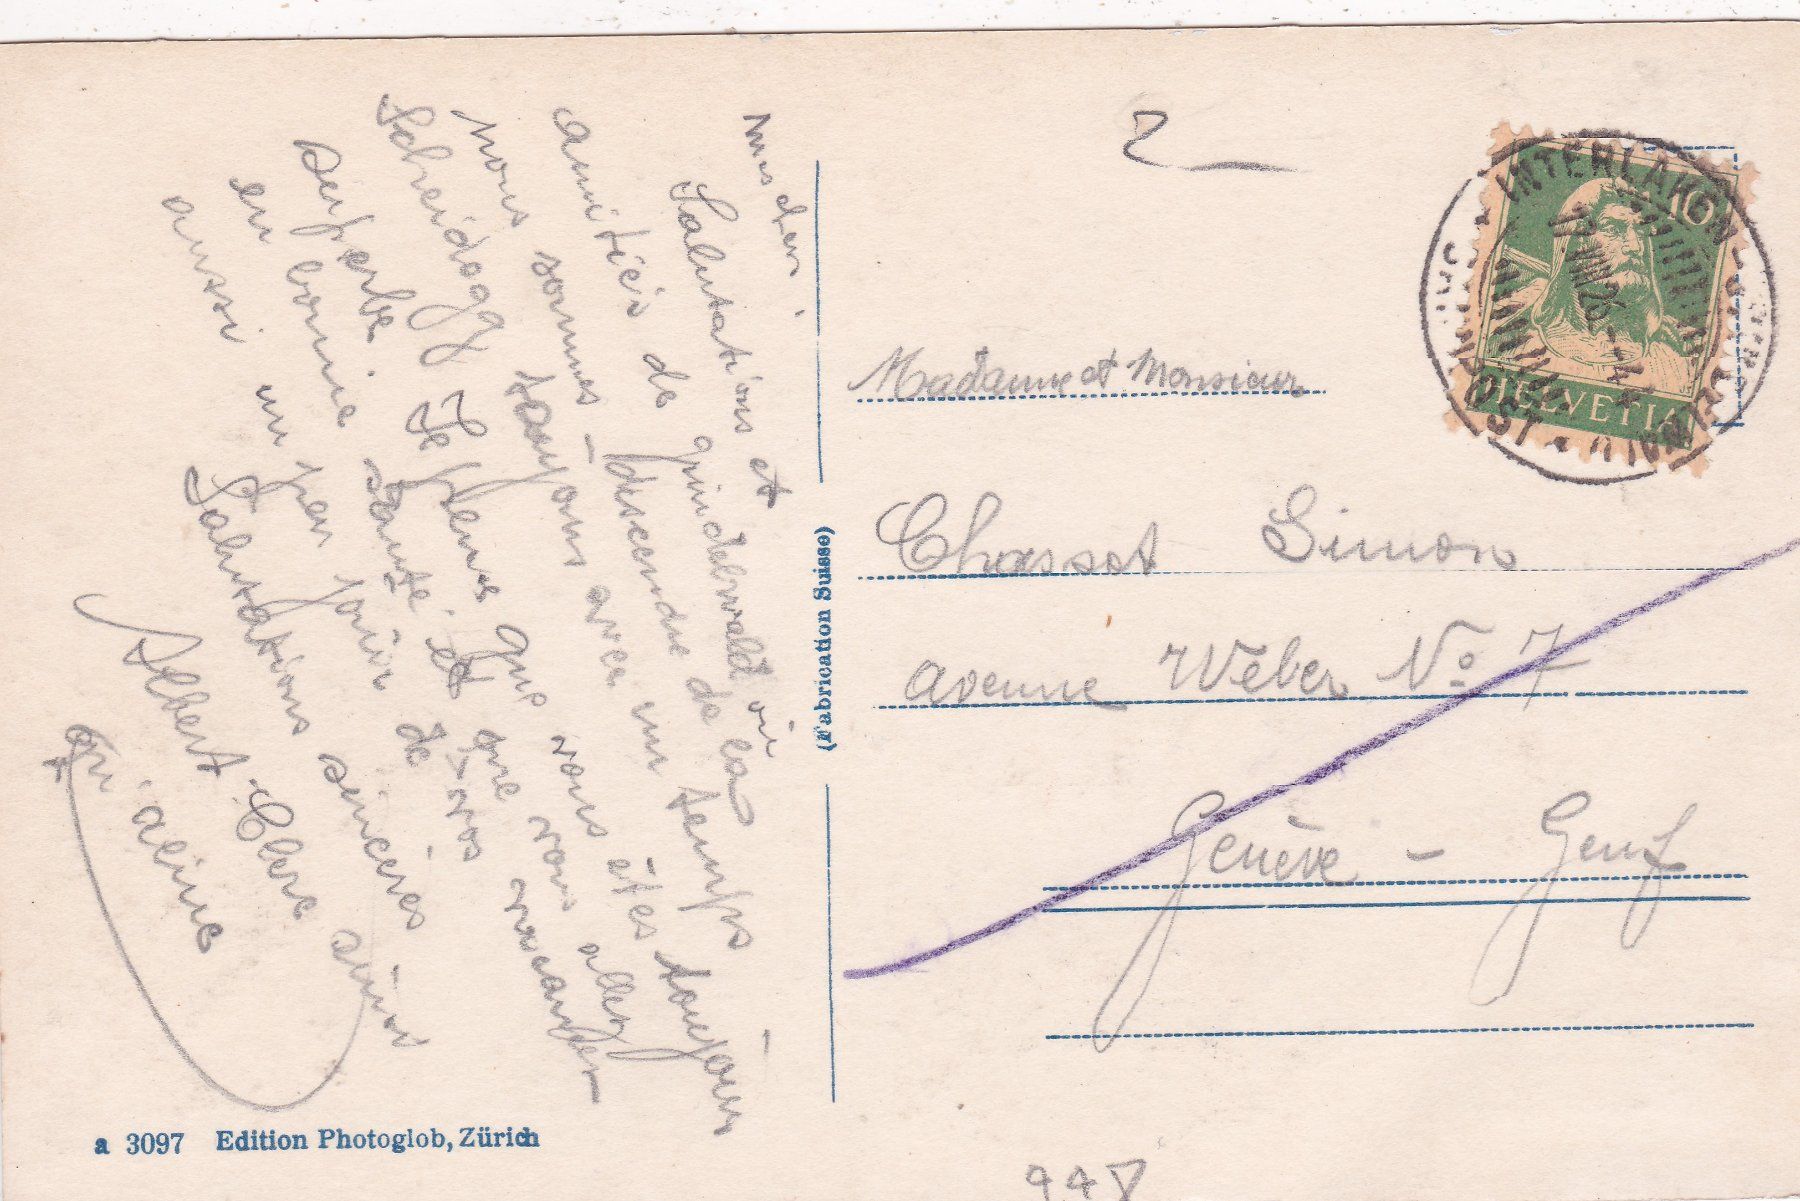 Mes chers!
Salutations et
amitiés de grindelwald où
nous sommes descendu de la
Scheidegg toujours avec un temps
superbe Je pense que vous êtes toujours
en bonne santé et que vous allez
aussi un peu jouir de vos vacances
Salutations sincères
Albert Clerc ainsi
qu'aline
a 3097 Edition Photoglob, Zürich
(Fabrication Suisse)
2
10
HELVETIA
INTERLAKEN
17.VIII.26
Madame et Monsieur
Chassot Simon
avenue Weber No 7
Genève - Genf